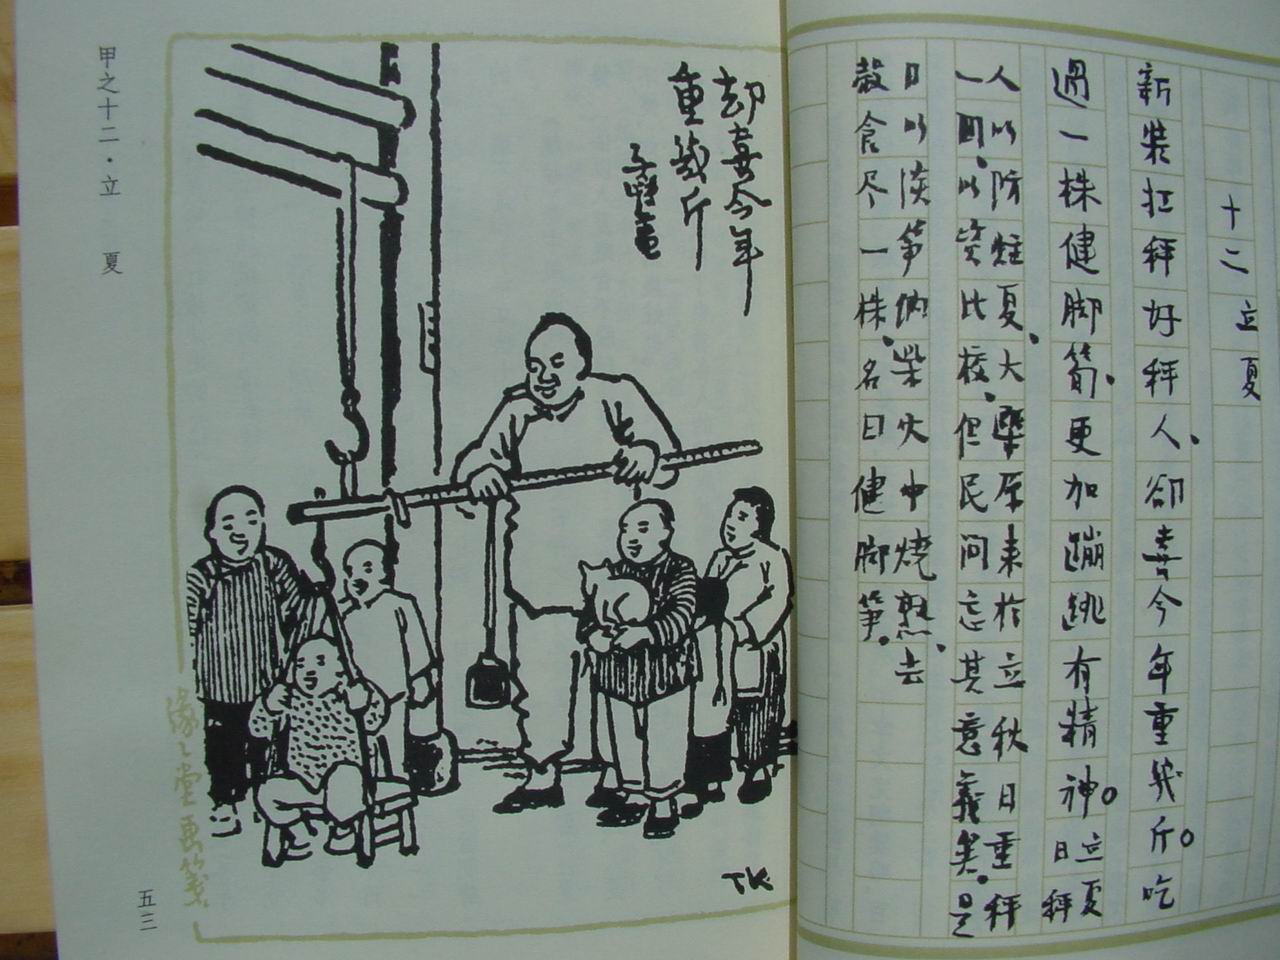 十二 立夏
新装扛秤好秤人、卻喜今年重幾斤。吃
過一株健脚筍、更加蹦跳有精神。立夏
日秤
人以防疰夏、大槩原来於立秋日重秤
一回、以資比校、但民间忘其意義矣、是
日以淡笋 柴火中燒熟、去
殼食尽一株、名曰健脚笋、
却喜今年
重幾斤
子愷畫
TK
緣〻堂画箋
甲之十二·立 夏
五三